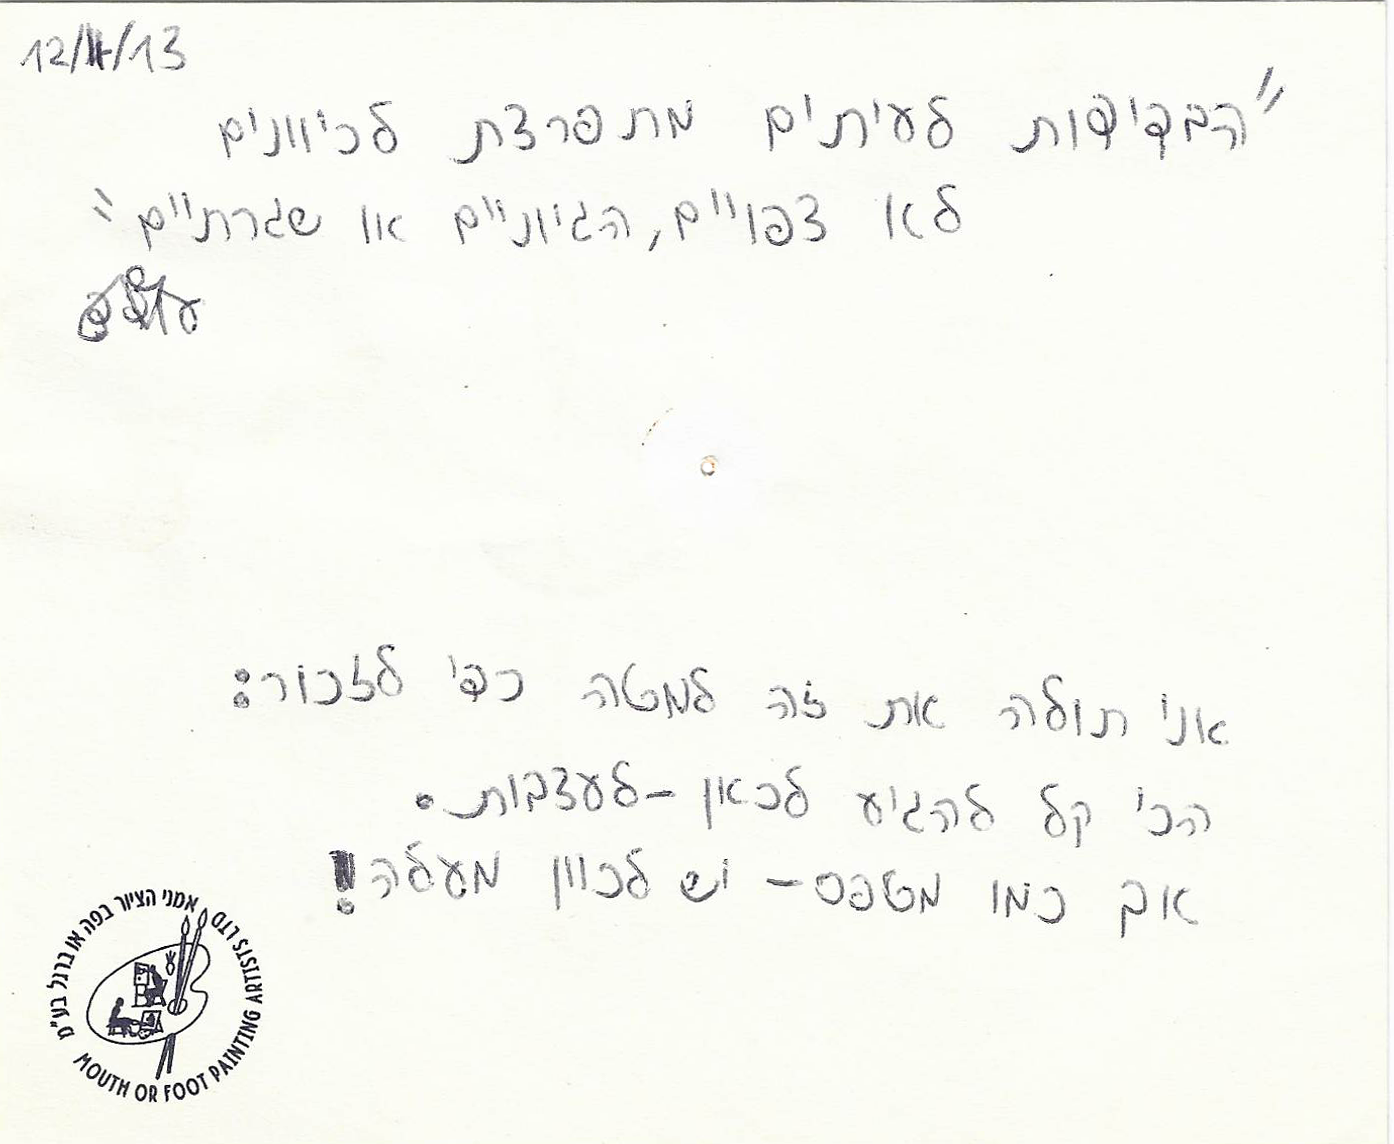 12/4/13
"הבדידות לעיתים מתפרצת לכיוונים
לא צפויים, הגיוניים או שגרתיים"
אני תולה את זה למטה כדי לזכור:
הכי קל להגיע לכאן - לעצבות.
אך כמו מטפס - יש לכוון מעלה!
אמני הציור בפה או ברגל בע"מ
MOUTH OR FOOT PAINTING ARTISTS LTD